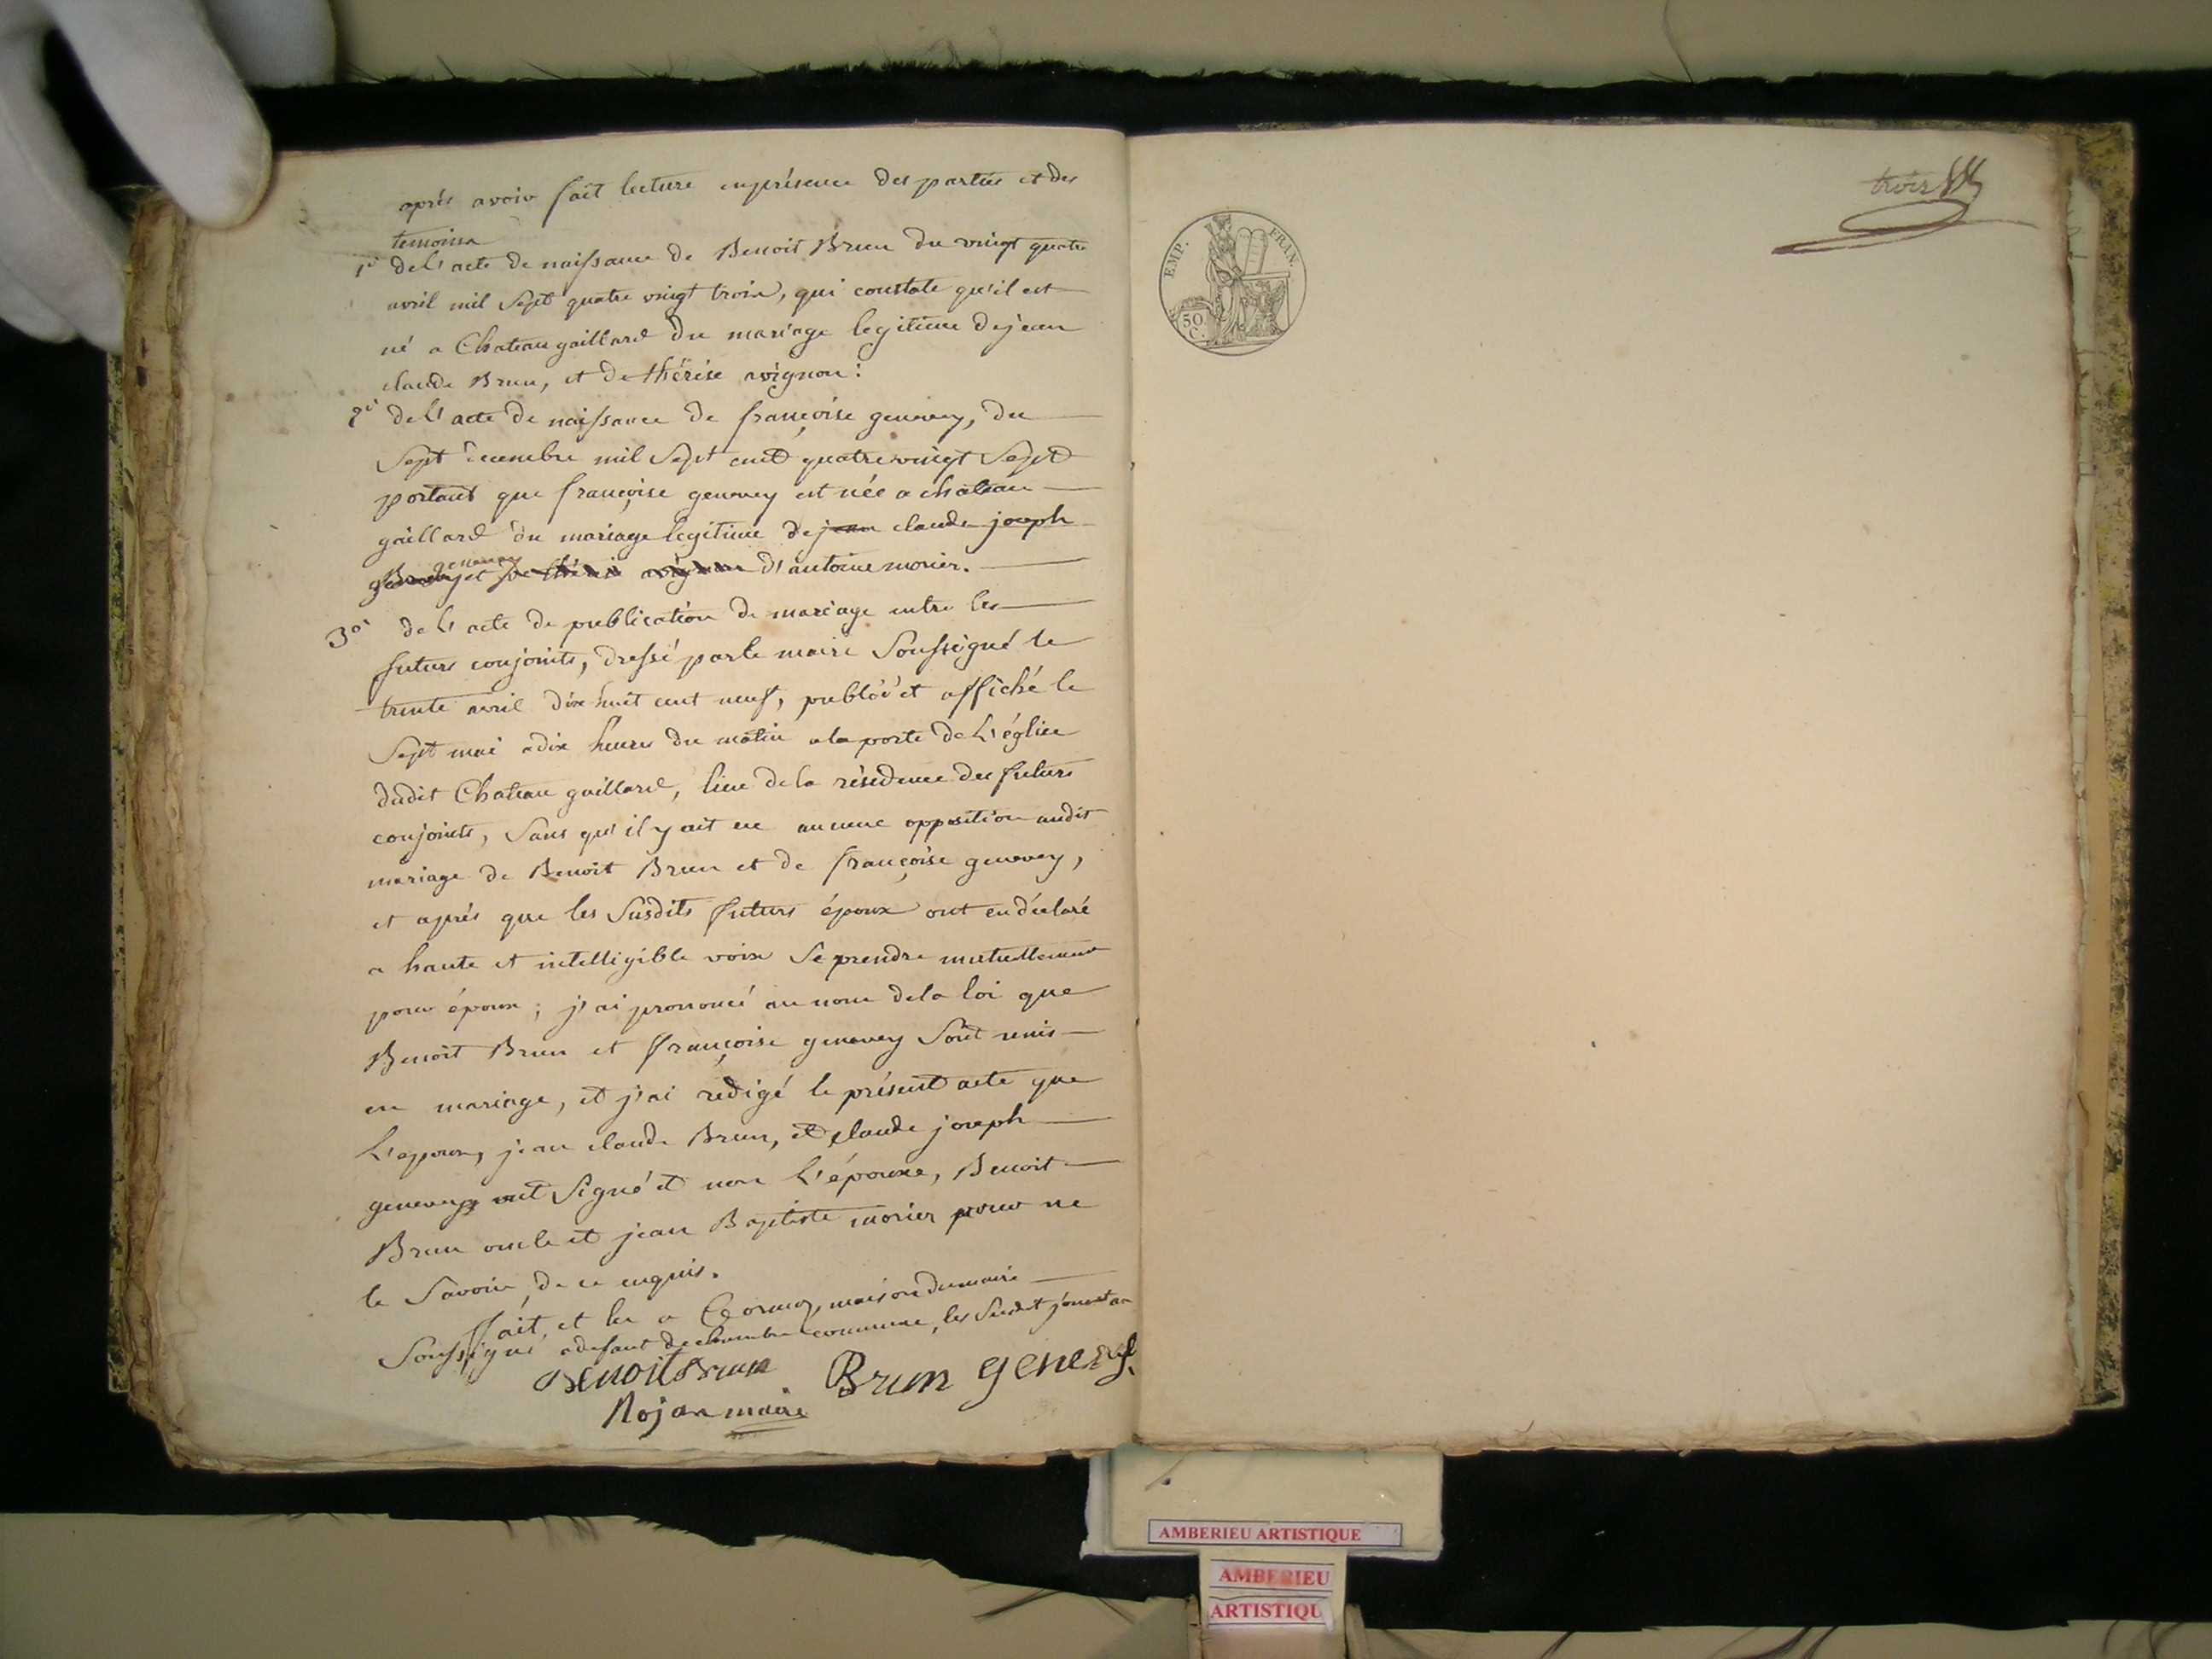 après avoir fait lecture enprésence des parties et des
temoins
1º del'acte de naissance de Benoit Brun du vingt quatre
avril mil Sept quatre vingt trois, qui constate qu'il est
né a Chateau gaillard du mariage legitime dejean
claude Brun, et de thérèse avignon :
2º del'acte de naissance de françoise genevey, du
Sept decembre mil Sept cent quatre vingt Sept
portant que françoise genevey est née a chateau
gaillard du mariage legitime de jean claude joseph
genevey et de thérèse avignon d'antoine morier.
3º del'acte de publication de mariage entre les
futurs conjoints, dressé parle maire Soussigné le
trente avril dix huit cent neuf, publié et affiché le
Sept mai adix heures du matin ala porte de L'église
dudit Chateau gaillard, lieu dela résidence des futurs
conjoints, Sans qu'il y ait eu aucune opposition audit
mariage de Benoit Brun et de françoise genevey,
et après que les Susdits futurs époux ont eu déclaré
a haute et intelligible voix Se prendre mutuellement
pour époux ; j'ai prononcé au nom dela loi que
Benoit Brun et françoise genevey Sont unis
en mariage, et j'ai redigé le présent acte que
L'epoux, jean claude Brun, et claude joseph
genevey ont Signé et non L'épouse, Benoit
Brun oncle et jean Baptiste morier pour ne
le Savoir, de ce enquis.
fait, et lu a Cormoz, maison dumaire
Soussigné adefaut de chambre commune, les Susdit jour et an
Benoit Brun Brun genevey
Rojan maire
trois
EMP. FRAN.
50 C.
AMBERIEU ARTISTIQUE
AMBERIEU
ARTISTIQU